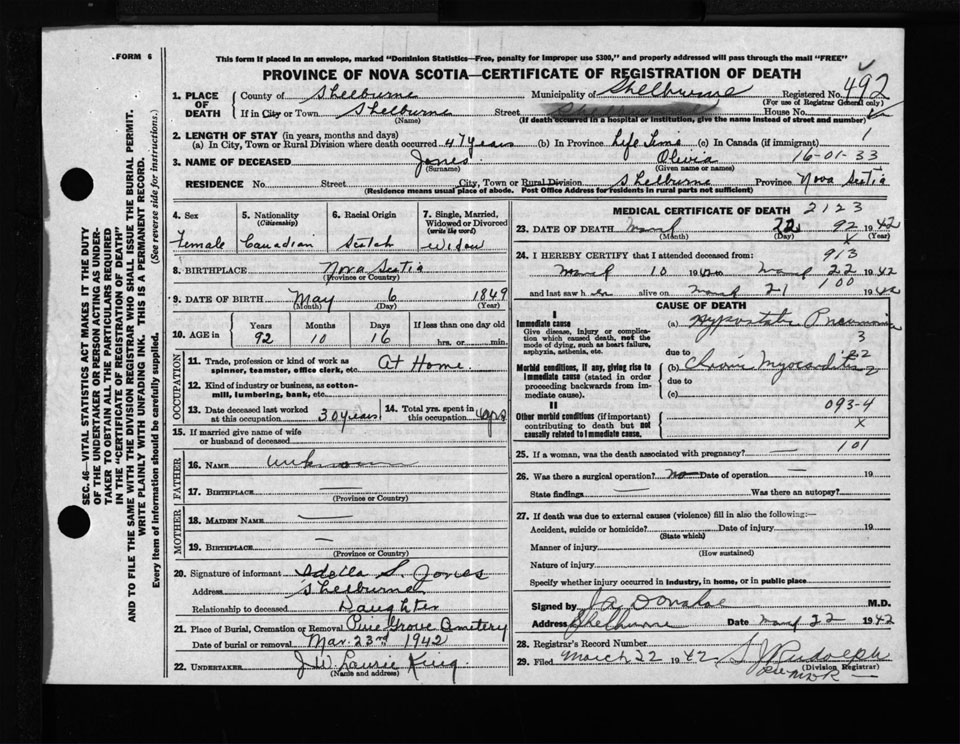 FORM 6
This form if placed in an envelope, marked "Dominion Statistics—Free, penalty for improper use $300," and properly addressed will pass through the mail "FREE"
PROVINCE OF NOVA SCOTIA—CERTIFICATE OF REGISTRATION OF DEATH
SEC. 46—VITAL STATISTICS ACT MAKES IT THE DUTY
OF THE UNDERTAKER OR PERSON ACTING AS UNDER-
TAKER TO OBTAIN ALL THE PARTICULARS REQUIRED
IN THE "CERTIFICATE OF REGISTRATION OF DEATH"
AND TO FILE THE SAME WITH THE DIVISION REGISTRAR WHO SHALL ISSUE THE BURIAL PERMIT.
WRITE PLAINLY WITH UNFADING INK. THIS IS A PERMANENT RECORD.
Every item of Information should be carefully supplied. (See reverse side for instructions.)
1. PLACE OF DEATH County of Shelburne Municipality of Shelburne Registered No. 492
(For use of Registrar General only)
If in City or Town Shelburne Street House No.
(Name) (If death occurred in a hospital or institution, give the name instead of street and number)
2. LENGTH OF STAY (in years, months and days)
(a) In City, Town or Rural Division where death occurred 47 years (b) In Province Life Time (c) In Canada (if immigrant) 1
3. NAME OF DECEASED Jones Olivia 16-01-33
(Surname) (Given name or names)
RESIDENCE No. Street City, Town or Rural Division Shelburne Province Nova Scotia
(Residence means usual place of abode. Post Office Address for residents in rural parts not sufficient)
4. Sex Female
5. Nationality (Citizenship) Canadian
6. Racial Origin Scotch
7. Single, Married, Widowed or Divorced (write the word) Widow
8. BIRTHPLACE Nova Scotia
(Province or Country)
9. DATE OF BIRTH May 6 1849
(Month) (Day) (Year)
10. AGE in Years 92 Months 10 Days 16 If less than one day old hrs. or min.
OCCUPATION
11. Trade, profession or kind of work as spinner, teamster, office clerk, etc. At Home
12. Kind of industry or business, as cotton-mill, lumbering, bank, etc.
13. Date deceased last worked at this occupation 30 years
14. Total yrs. spent in this occupation
15. If married give name of wife or husband of deceased
FATHER
16. NAME unknown
17. BIRTHPLACE —
(Province or Country)
MOTHER
18. MAIDEN NAME —
19. BIRTHPLACE —
(Province or Country)
20. Signature of informant Idella S. Jones
Address Shelburne
Relationship to deceased Daughter
21. Place of Burial, Cremation or Removal Pine Grove Cemetery
Date of burial or removal Mar. 23rd 1942
22. UNDERTAKER J.W. Laurie King
(Name and address)
MEDICAL CERTIFICATE OF DEATH 2123
23. DATE OF DEATH March 22 92 1942
(Month) (Day) (Year)
x
24. I HEREBY CERTIFY that I attended deceased from: 913
March 10 1942 to March 22 1942
100
and last saw her alive on March 21 1942
CAUSE OF DEATH
I
Immediate cause
Give disease, injury or complication which caused death, not the mode of dying, such as heart failure, asphyxia, asthenia, etc.
(a) Hypostatic Pneumonia
3
due to
Morbid conditions, if any, giving rise to immediate cause (stated in order proceeding backwards from immediate cause).
(b) Chronic Myocarditis
due to
(c)
II
Other morbid conditions (if important) contributing to death but not causally related to immediate cause.
093-4
x
25. If a woman, was the death associated with pregnancy? — 101
26. Was there a surgical operation? No Date of operation — 19
State findings — Was there an autopsy?
27. If death was due to external causes (violence) fill in also the following:—
Accident, suicide or homicide? Date of injury 19
(State which)
Manner of injury
(How sustained)
Nature of injury
Specify whether injury occurred in industry, in home, or in public place
Signed by J A Donahoe M.D.
Address Shelburne Date March 22 1942
28. Registrar's Record Number
29. Filed March 22 1942 Rudolph
(Division Registrar)